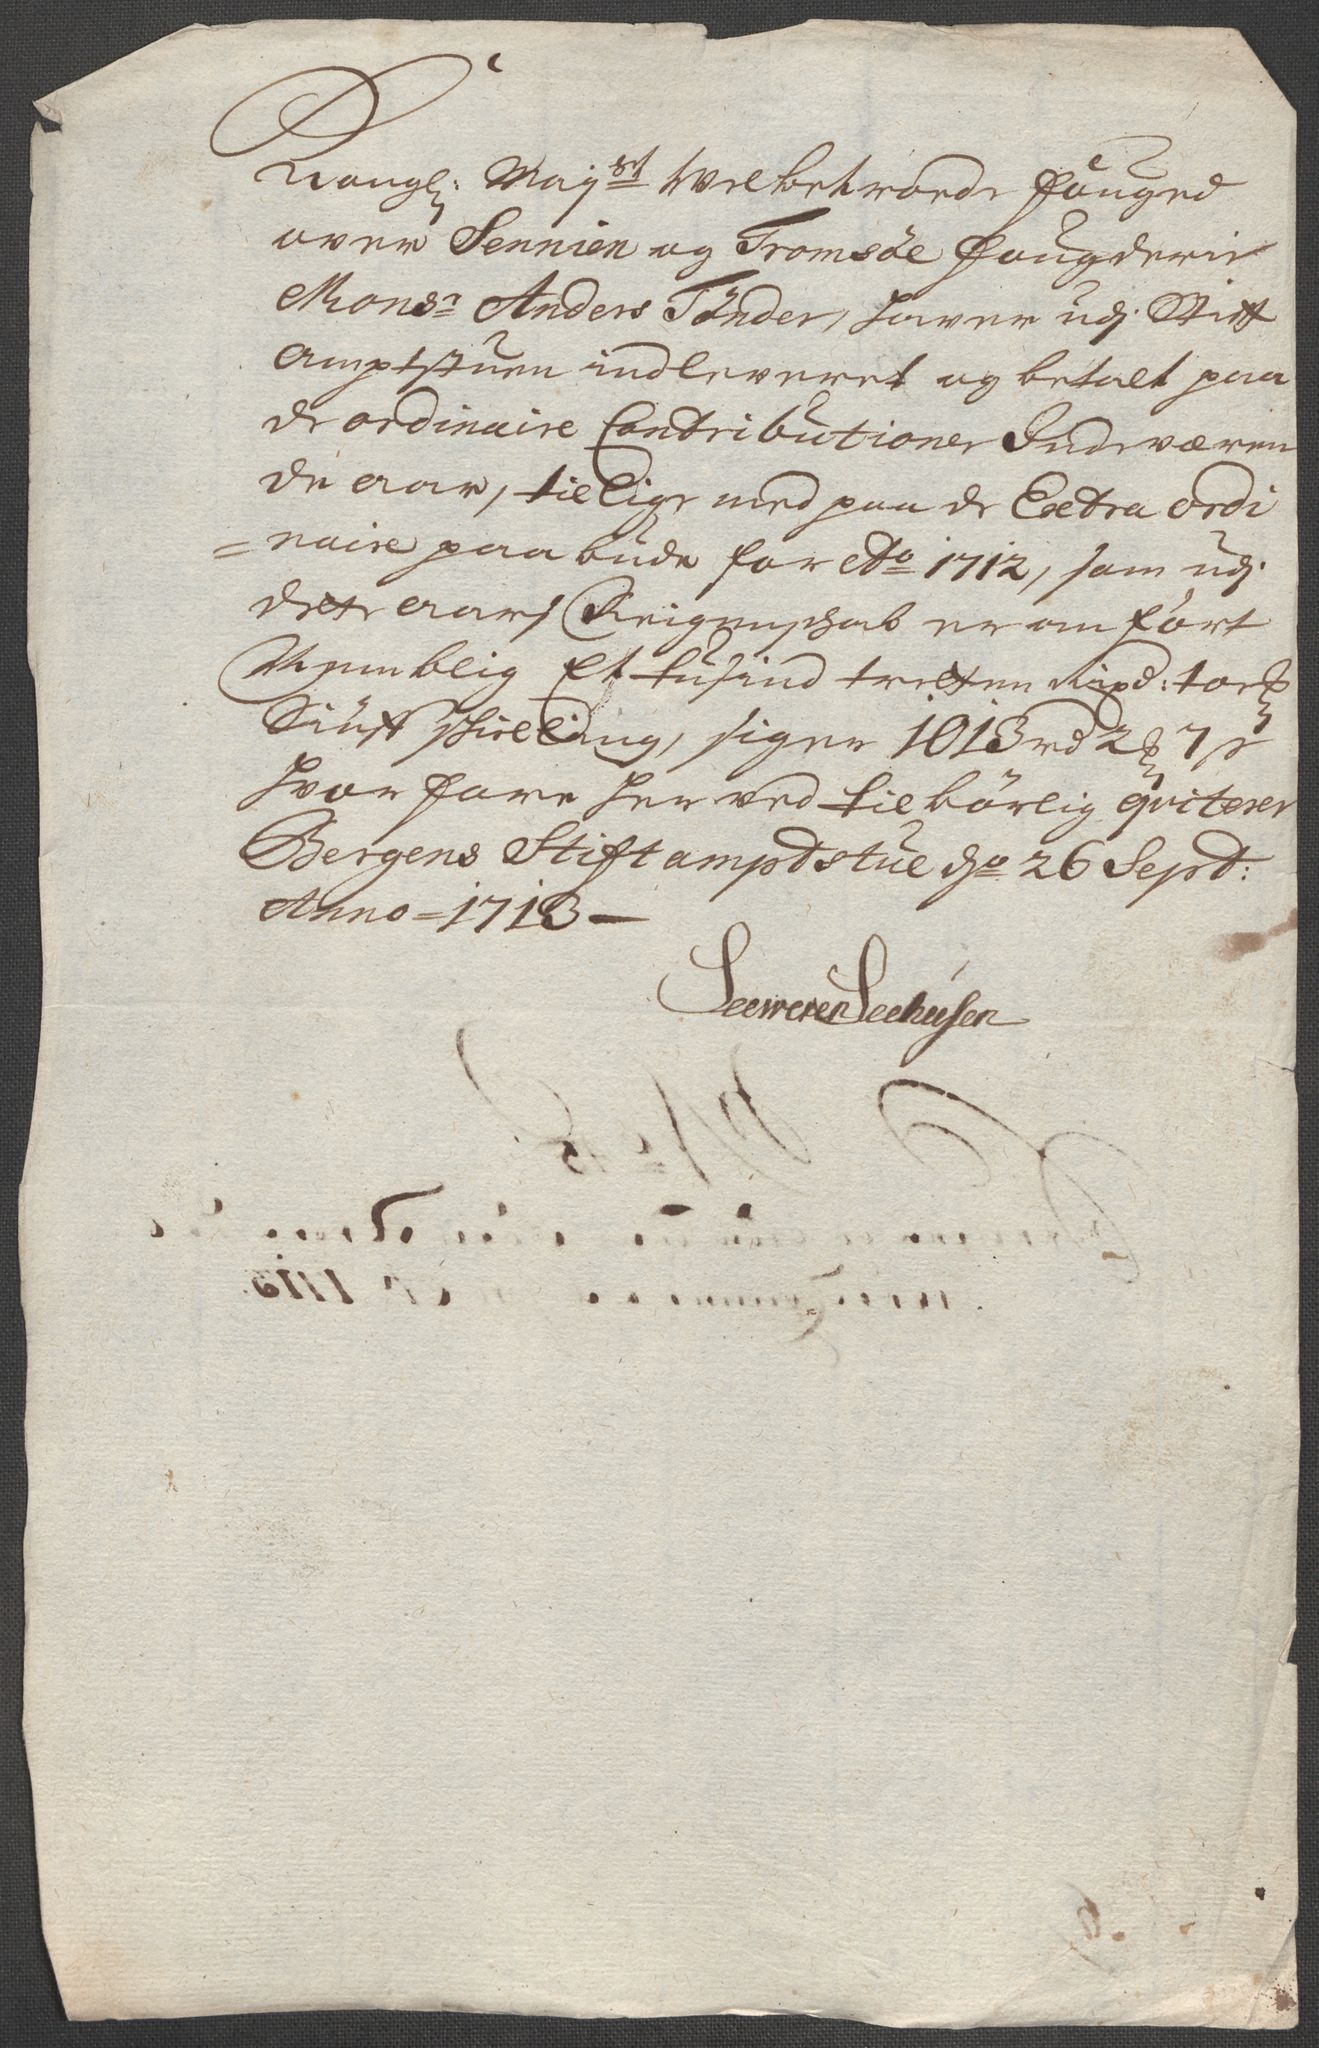 Kongl: May:st Welbetroede Fouged
over Sennien og Tromsöe Fougderie
Mons:r Anders Tönder, haver udj Stift
amptstuen indleveret og betalt paa
de ordinaire Contributioner Indeværen
de aar, tillige med paa de Extra ordi
=naire paabude for Ao 1712, som udj
dette aars Reigenschab er anfört
Nemblig Et tusind tretten Rixd: toe
Siuff skilling, siger 1013 rd 2 7 s
hvorfore herved tilbörlig qviterer
Bergens Stiftampdstue do 26 Sept:
Anno = 1713 —
Seeweren Seehusen